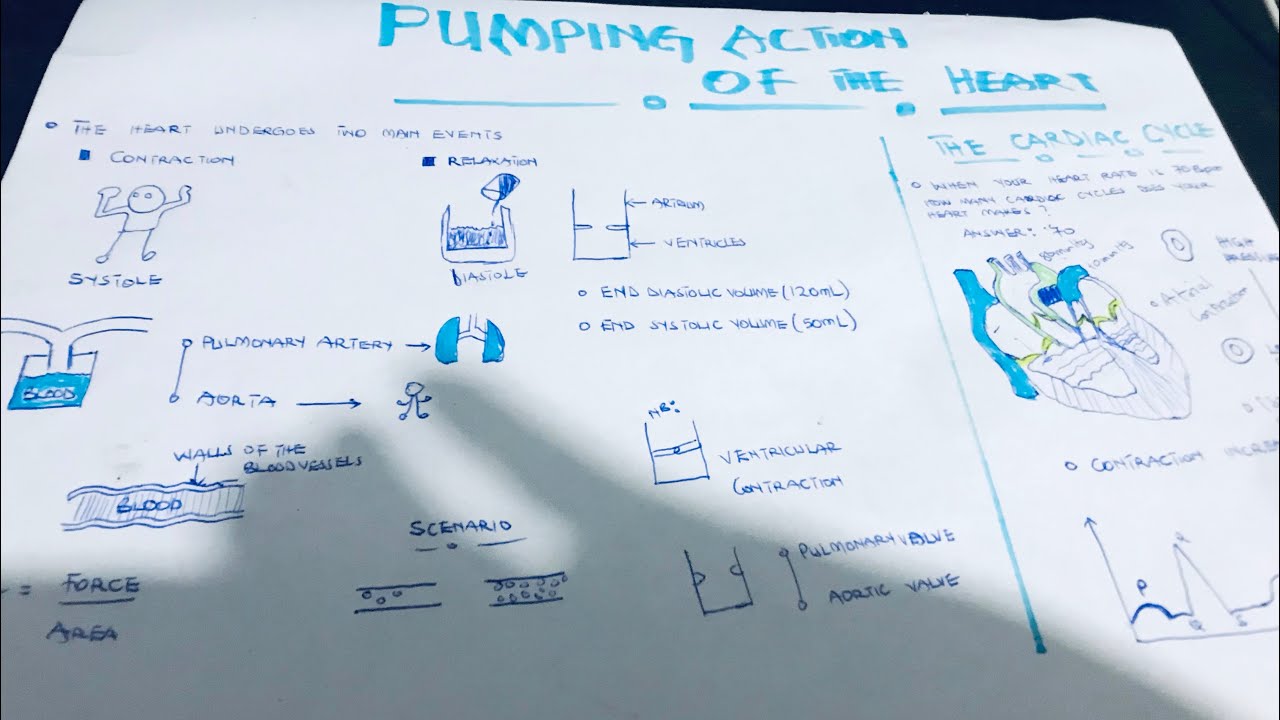 PUMPING ACTION
OF THE HEART
THE HEART UNDERGOES TWO MAIN EVENTS
CONTRACTION
RELAXATION
SYSTOLE
DIASTOLE
ATRIUM
VENTRICLES
END DIASTOLIC VOLUME (120mL)
END SYSTOLIC VOLUME (50mL)
BLOOD
PULMONARY ARTERY
AORTA
WALLS OF THE
BLOOD VESSELS
BLOOD
NB:
VENTRICULAR
CONTRACTION
SCENARIO
= FORCE
AREA
PULMONARY VALVE
AORTIC VALVE
THE CARDIAC CYCLE
WHEN YOUR HEART RATE IS 70Bpm
HOW MANY CARDIAC CYCLES DOES YOUR
HEART MAKES?
ANSWER: 70
HIGH
Atrial
Contraction
CONTRACTION
P
R
Q
S